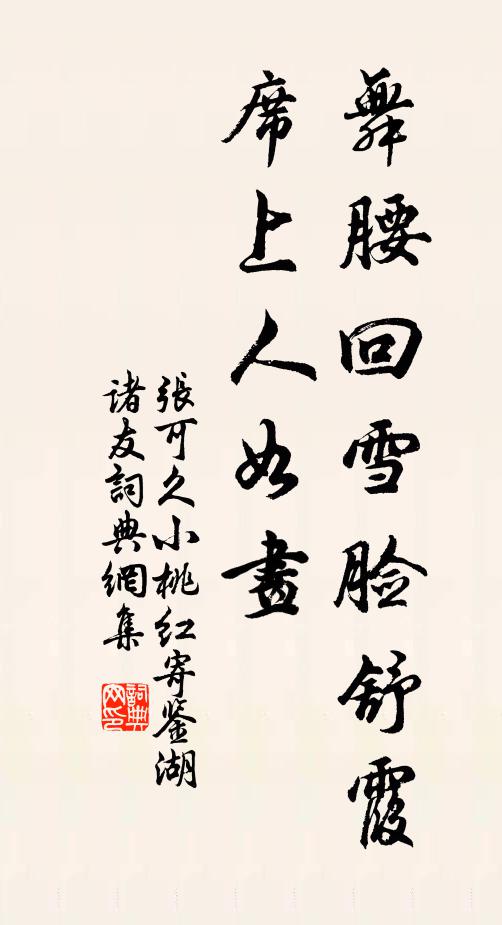 舞腰回雪脸舒霞
席上人如畫
張可久小桃红寄鉴湖
诸友詞典網集
詞典网印